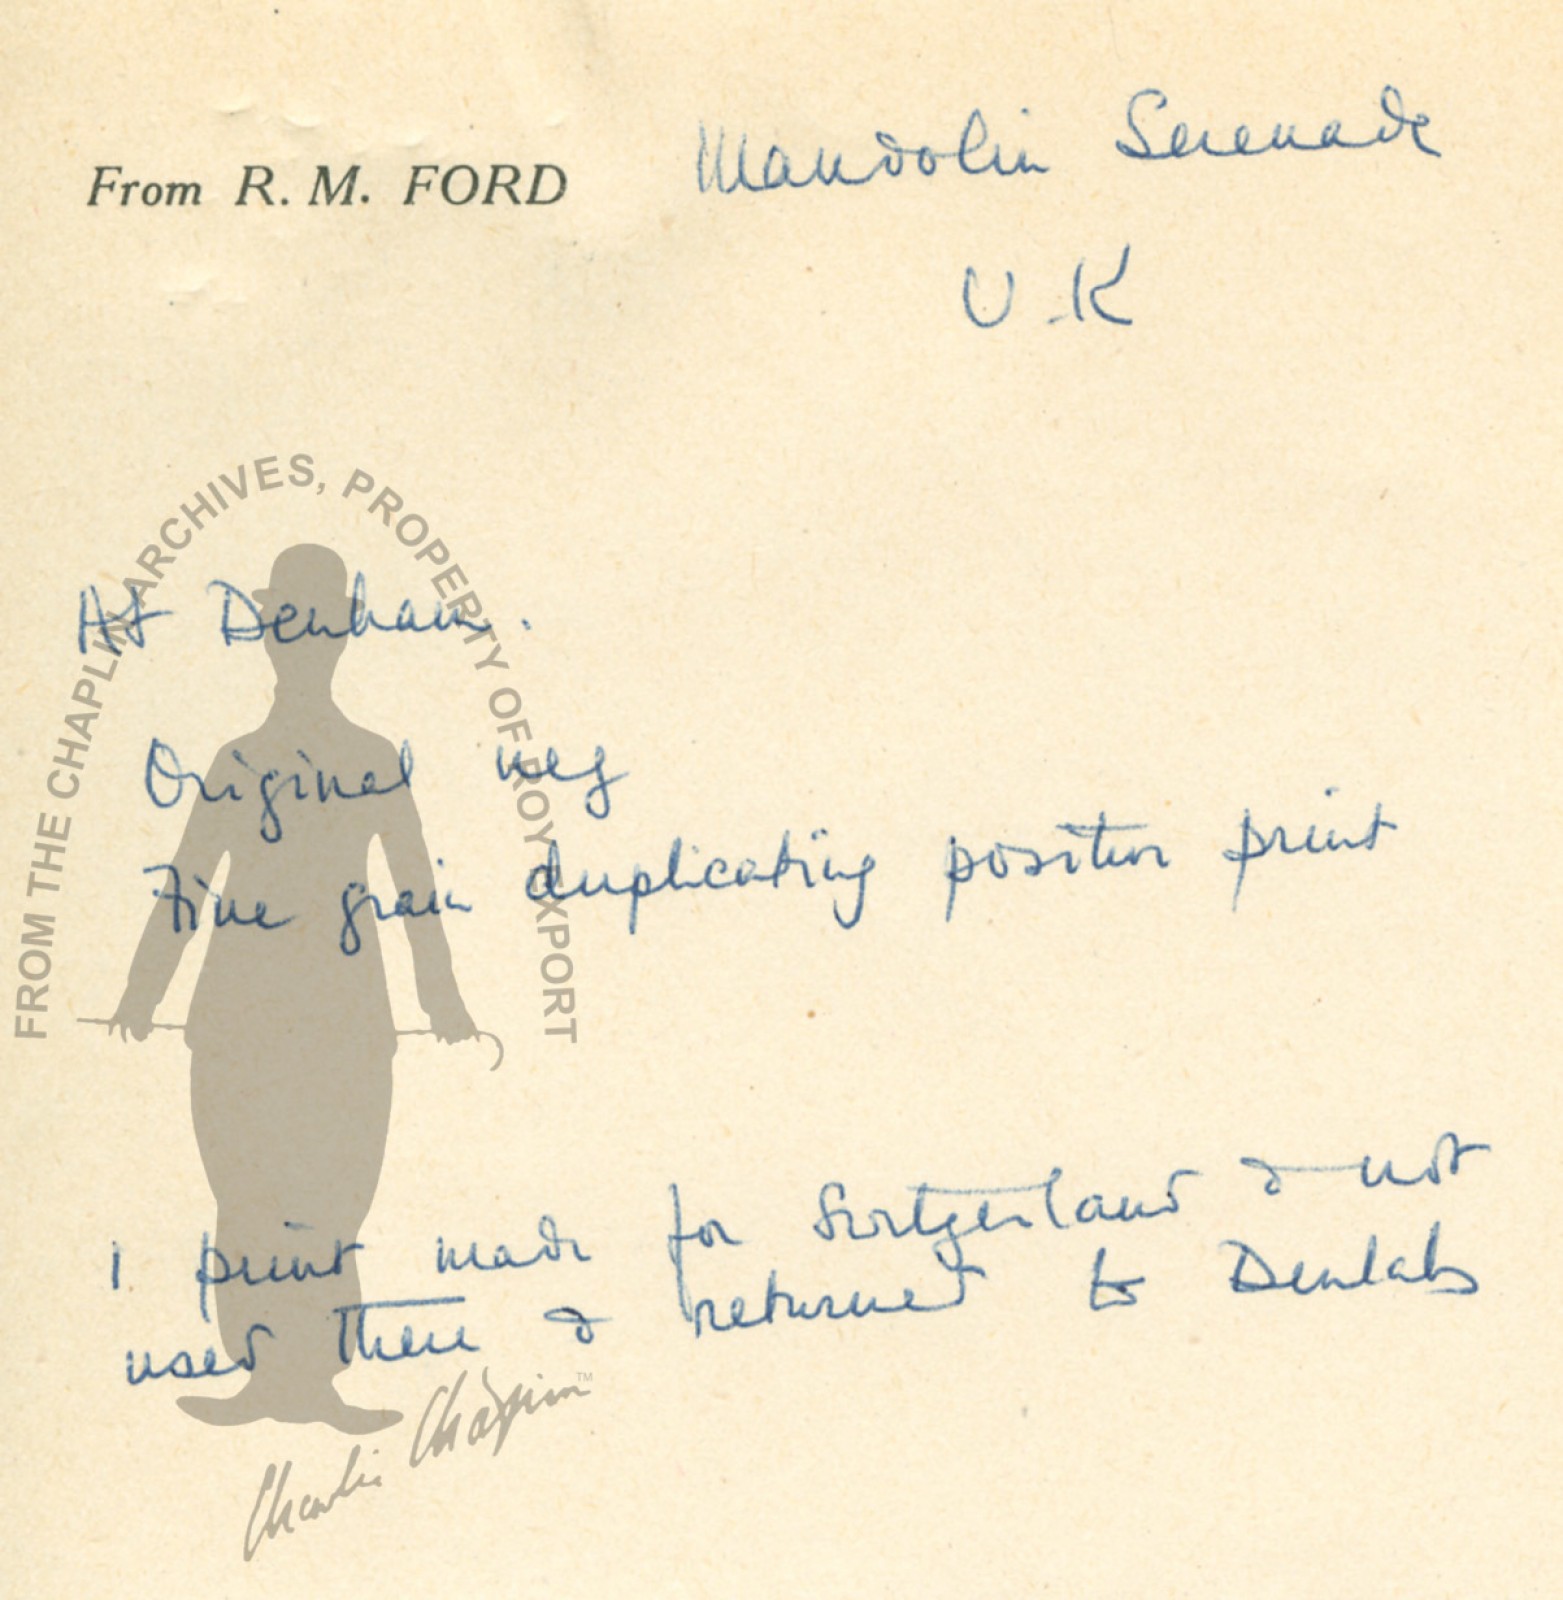 From R. M. FORD
Mandolin Serenade
U.K
At Denham.
Original neg
Fine grain duplicating positive print
1 print made for Switzerland & not
used there & returned to Denlabs
FROM THE CHAPLIN ARCHIVES, PROPERTY OF ROY EXPORT
Charlie Chaplin™